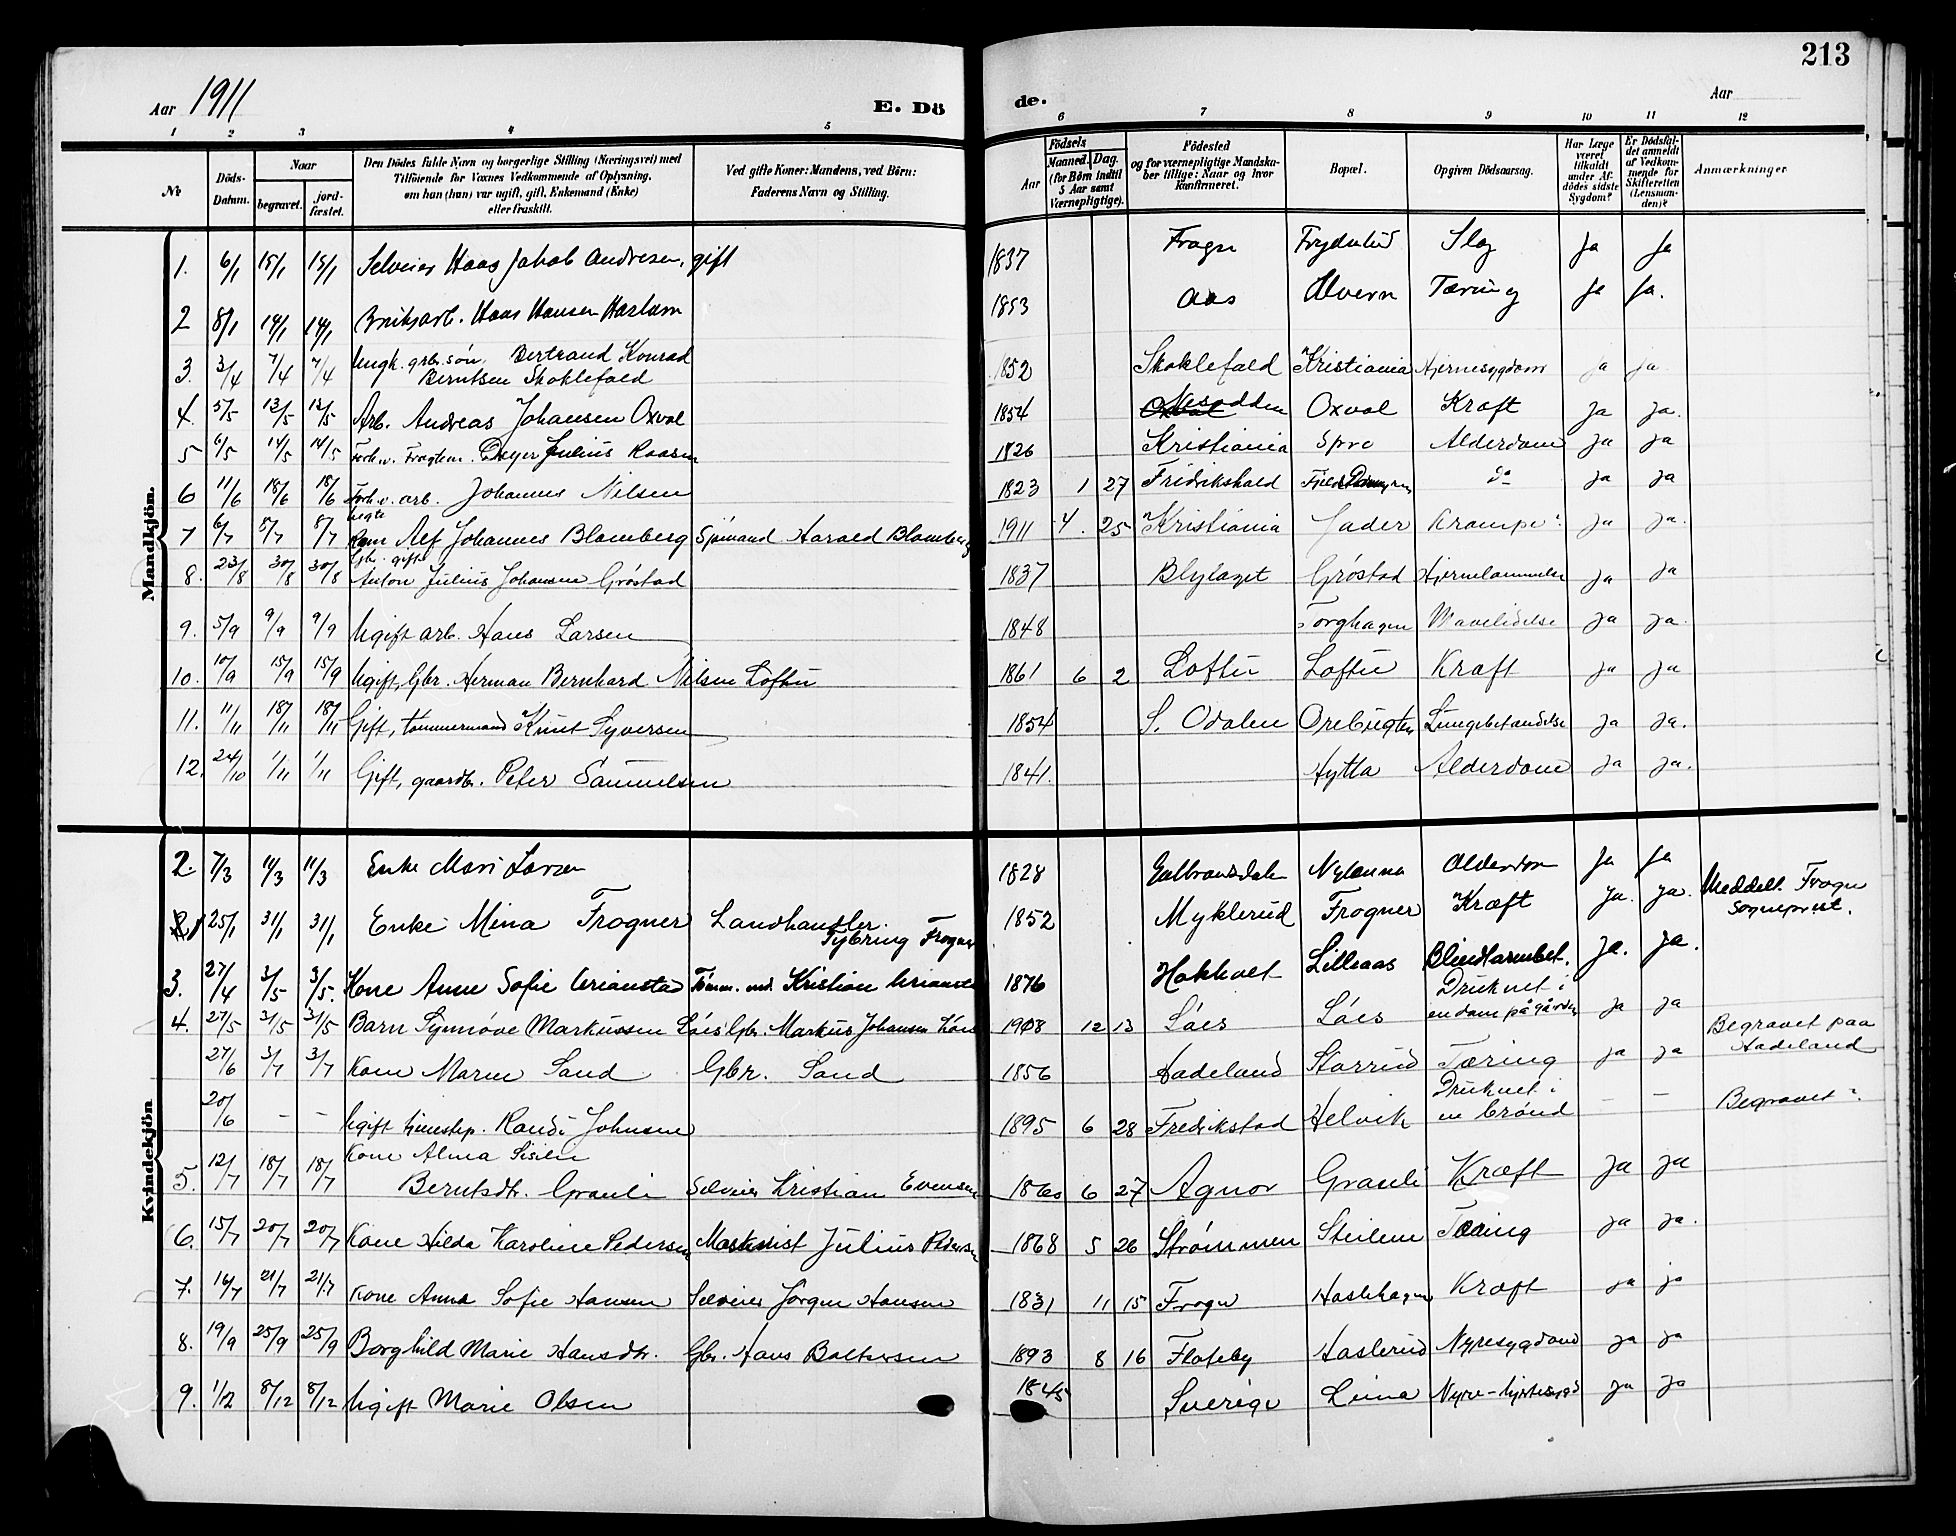 213
Aar 1911
E. Döde.
Aar
1 2 3 4 5 6 7 8 9 10 11 12
No
Döds-Datum.
Naar
begravet.
jord-fæstet.
Den Dödes fulde Navn og borgerlige Stilling (Næringsvei) med
Tilföiende for Voxnes Vedkommende af Oplysning,
om han (hun) var ugift, gift, Enkemand (Enke)
eller fraskilt.
Ved gifte Koner: Mandens, ved Börn:
Faderens Navn og Stilling.
Födsels
Aar
Maaned. Dag.
(for Börn indtil
5 Aar samt
Værnepligtige).
Födested
og for værnepligtige Mandska-
ber tillige: Naar og hvor
konfirmeret.
Bopæl.
Opgiven Dödsaarsag.
Har Læge
været
tilkaldt
under Af-
dödes sidste
Sygdom?
Er Dödsfal-
det anmeldt
af Vedkom-
mende for
Skifteretten
(Lensman-
den)?
Anmærkninger
Mandkjön.
1. 6/1 15/1 15/1 Selveier Hans Jakob Andresen, gift 1837 Frogn Slag Ja Ja
2 8/1 14/1 14/1 Hans Hansen 1853 Aas Alvern Tæring Ja Ja.
3. 3/4 7/4 7/4 Ungk. grbr. søn, Bertrand Konrad
Berntsen Skoklefald 1852 Skoklefald Kristiania Hjernesygdom ja ja
4. 5/5 12/5 12/5 Arb. Andreas Johansen Oxval 1854 Nesodden Oxval Kræft Ja Ja.
5 6/5 14/5 14/5 Forh.v. Julius 1826 Kristiania Spro Alderdom Ja Ja
6 11/6 18/6 18/6 Forh.v. arb. Johannes Nilsen 1823 1 27 Fridrikshald do Ja Ja
7 6/7 8/7 8/7 Alf Johannes Blomberg Sjömand Harald Blomberg 1911 4. 25 Kristiania Jader Krampe? Ja Ja.
8. 23/8 30/8 30/8 Gbr. gift
Anton Julius Johansen Gröstad 1837 Blylaget Gröstad Hjernelammelse Ja Ja
9. 5/9 9/9 9/9 Ugift arb. Hans Larsen 1848 Torghagen Mavelidelse Ja Ja.
10. 10/9 15/9 15/9 Ugift, Gbr. Herman Bernhard Nilsen Loftu 1861 6 2 Loftu Loftu Kræft Ja Ja
11. 11/11 18/11 18/11 Gift, tømmermand Knut Syversen 1854 S. Odalen Orebugten Lungebetændelse Ja Ja.
12. 24/10 1/11 1/11 Gift, gaardbr. Peter Samuelsen 1841. Hytta Alderdom Ja Ja.
Kvindekjön
2. 7/3 11/3 11/3 Enke Mari Larsen 1828 Gulbrandsdalen Alderdom Ja Ja
1 25/1 31/1 31/1 Enke Mina Frogner Landhandler
Tybring Frogner 1852 Myklerud Frogner Kræft Ja. Ja. Meddelt Frogn
Sogneprest.
3. 27/4 3/5 3/5. Kone Anne Sofie Urianstad Tömm. md. Kristian Urianstad 1876 Hokholt Lillraas Blindtarmbet. Ja. Ja.
4. 27/5 31/5 31/5 Barn Synnöve Markussen Löes Gbr. Markus Johansen Löes 1908 12 13 Löes Löes Druknet i
en dam på gården Ja Ja
27/6 3/7 3/7 Kone Maren Sand Gbr. Sand 1856 Hadeland Storrud Tæring Ja Ja Begravet paa
Hadeland
20/6 – – Ugift tjenestep. Randi Johnsen 1895 6 28 Fredrikstad Helvik Druknet i
en brönd – – Begravet ?
5. 12/7 18/7 18/7 Kone Alma Sisilie
Berntsdtr. Granli Selveier Kristian Evensen 1860 6 27 Agnor Granli Kræft Ja Ja
6. 15/7 20/7 20/7 Kone Hilda Karoline Pedersen Maskinist Julius Pedersen 1868 5 26 Strömmen Steilene Tæring Ja Ja.
7. 16/7 21/7 21/7 Kone Anna Sofie Hansen Selveier Jörgen Hansen 1831 11 15 Frogn Haslehagen Kræft ja ja
8. 19/9 25/9 25/9 Borghild Marie Hansdtr. Gbr. Hans Baltersen 1893 8 16 Flateby Haslerud Nyresygdom ja ja
9. 1/12 8/12 8/12 Ugift Marie Olsen 1845 Sverige Nyre- Ja Ja